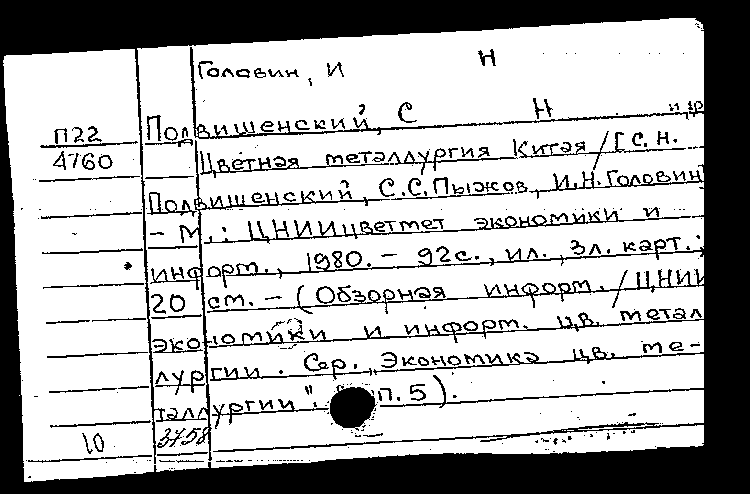 Головин, И Н
П22 Подвишенский, С Н и др
4760 Цветная металлургия Китая / [С.Н.
Подвишенский, С.С. Пыжов, И.Н. Головин]
- М.: ЦНИИцветмет экономики и
информ., 1980. - 92с., ил., 3л. карт.;
20 см. - (Обзорная информ. / ЦНИИ
экономики и информ. цв. метал
лургии. Сер. „Экономика цв. ме-
таллургии". п.5).
10 3758